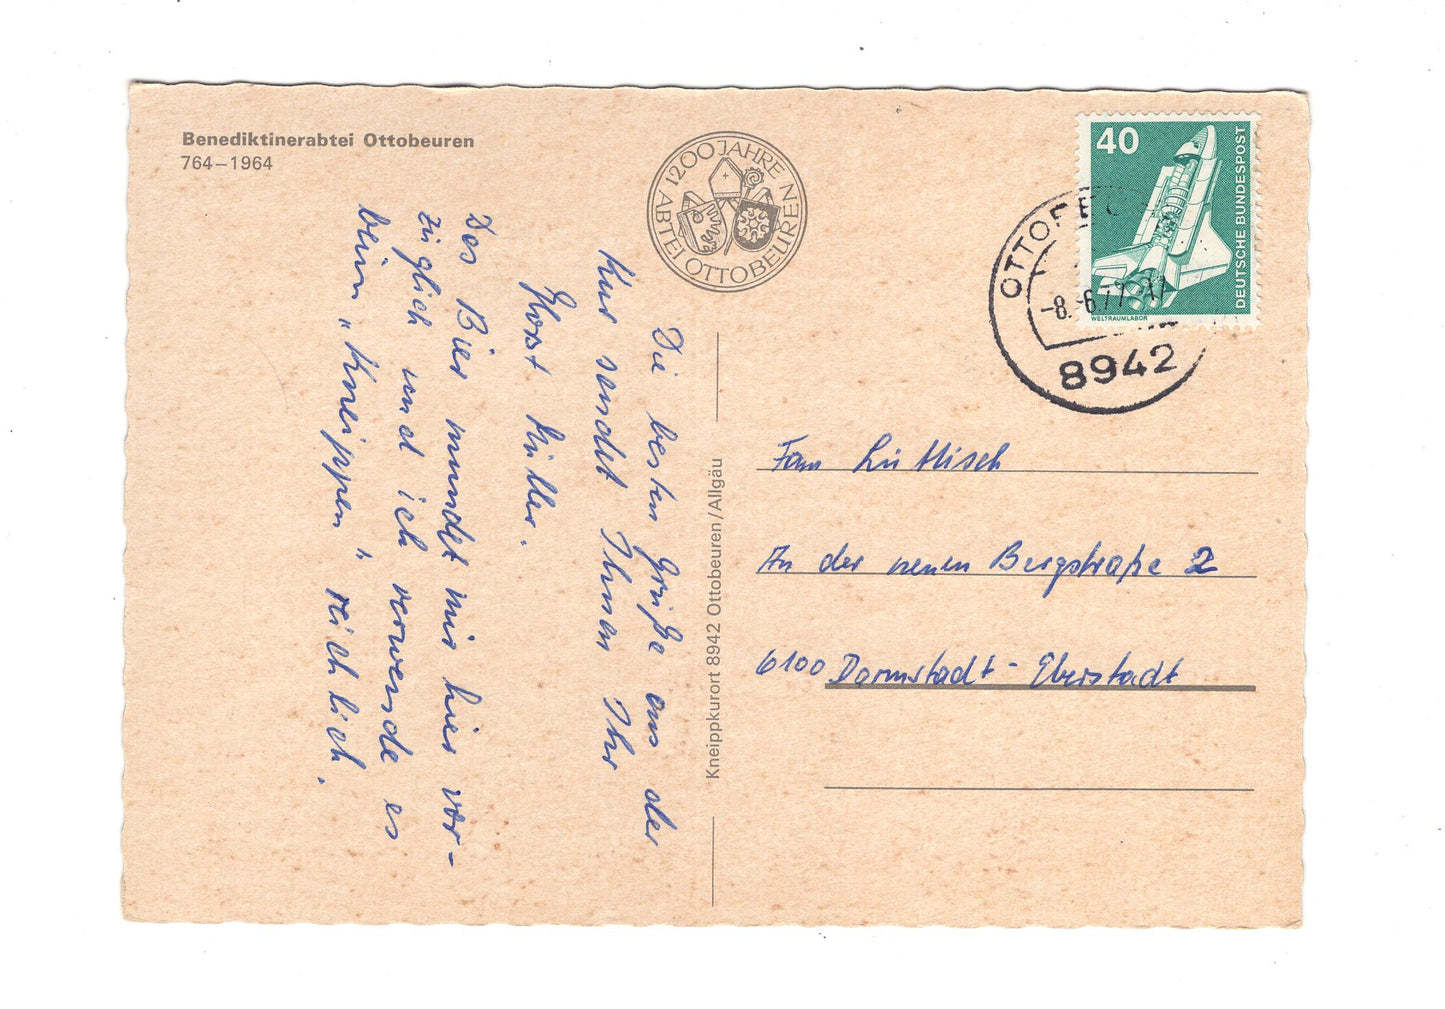 Benediktinerabtei Ottobeuren
764–1964
1200 JAHRE
ABTEI OTTOBEUREN
40
DEUTSCHE BUNDESPOST
WELTRAUMLABOR
-8.-6.77-17
8942
Die besten Grüße aus der
Kur sendet Ihnen Ihr
Horst Müller.
Das Bier mundet mir hier vor-
züglich und ich verwende es
beim „Kneippen" reichlich.
Kneippkurort 8942 Ottobeuren/Allgäu
Frau
An der neuen Bergstraße 2
6100 Darmstadt-Eberstadt